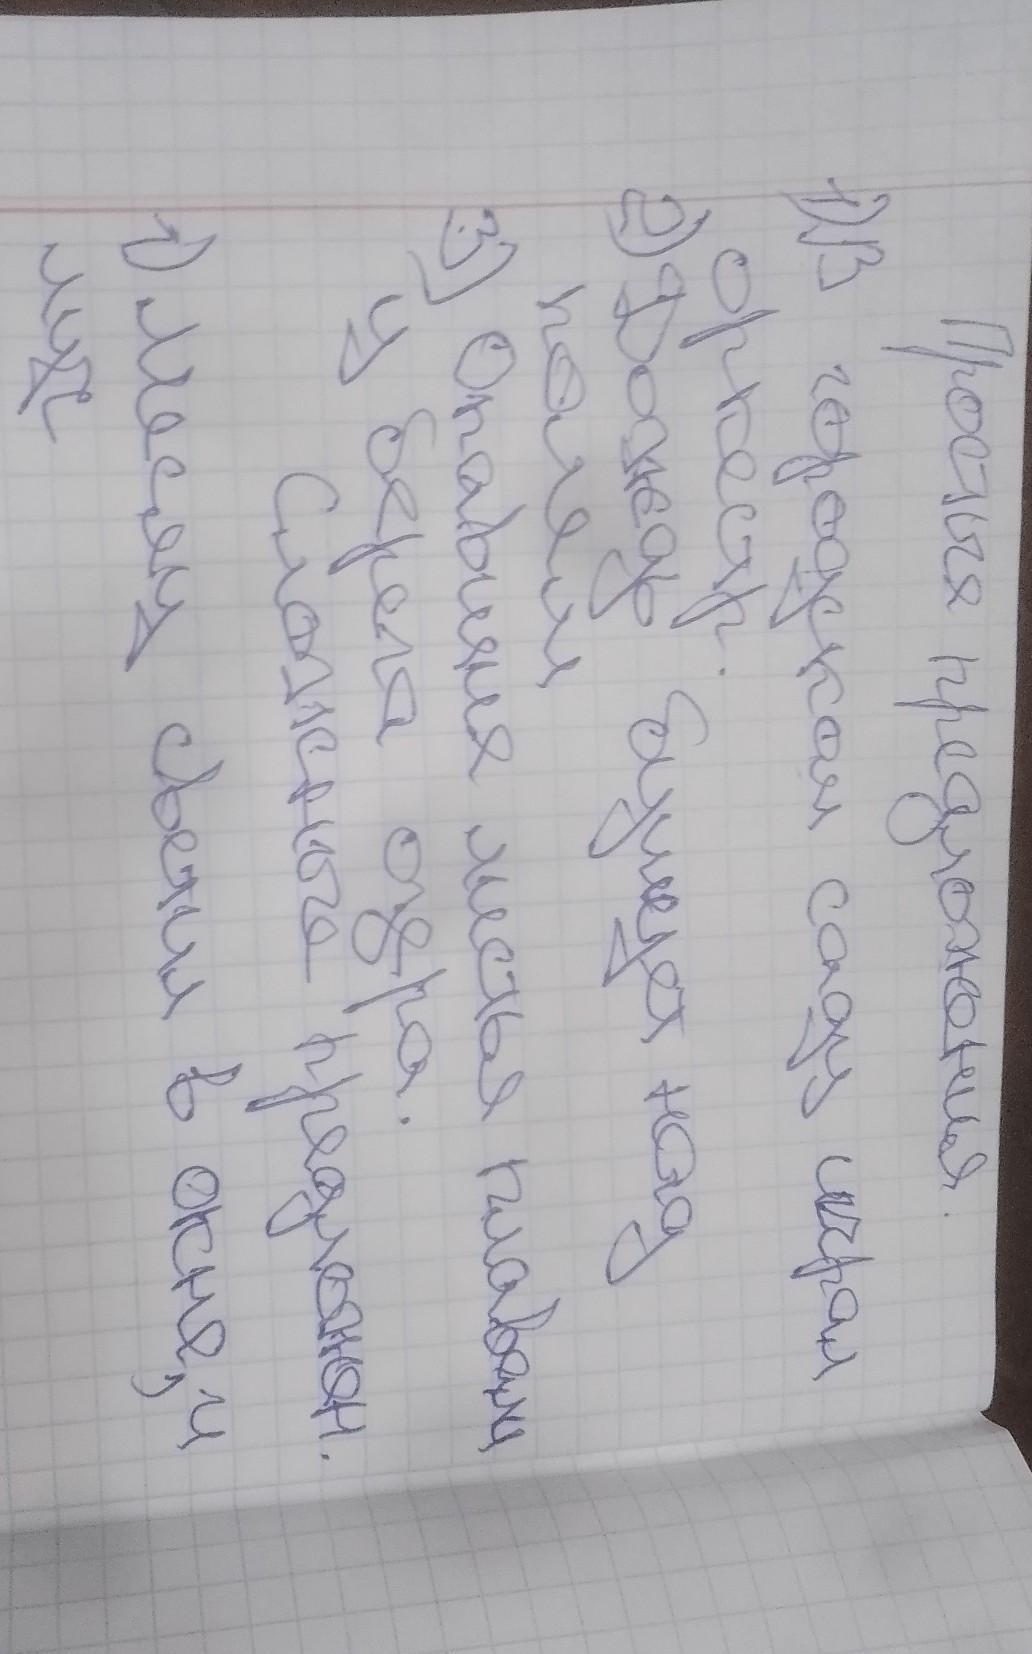 Простыя предложения.
1) В городском саду играл
оркестр.
2) Дождь бушует над
полем
3) Опавшия листья плавали
у берега озера.
Сложеные предложен.
1) Месяц светил в окне, и